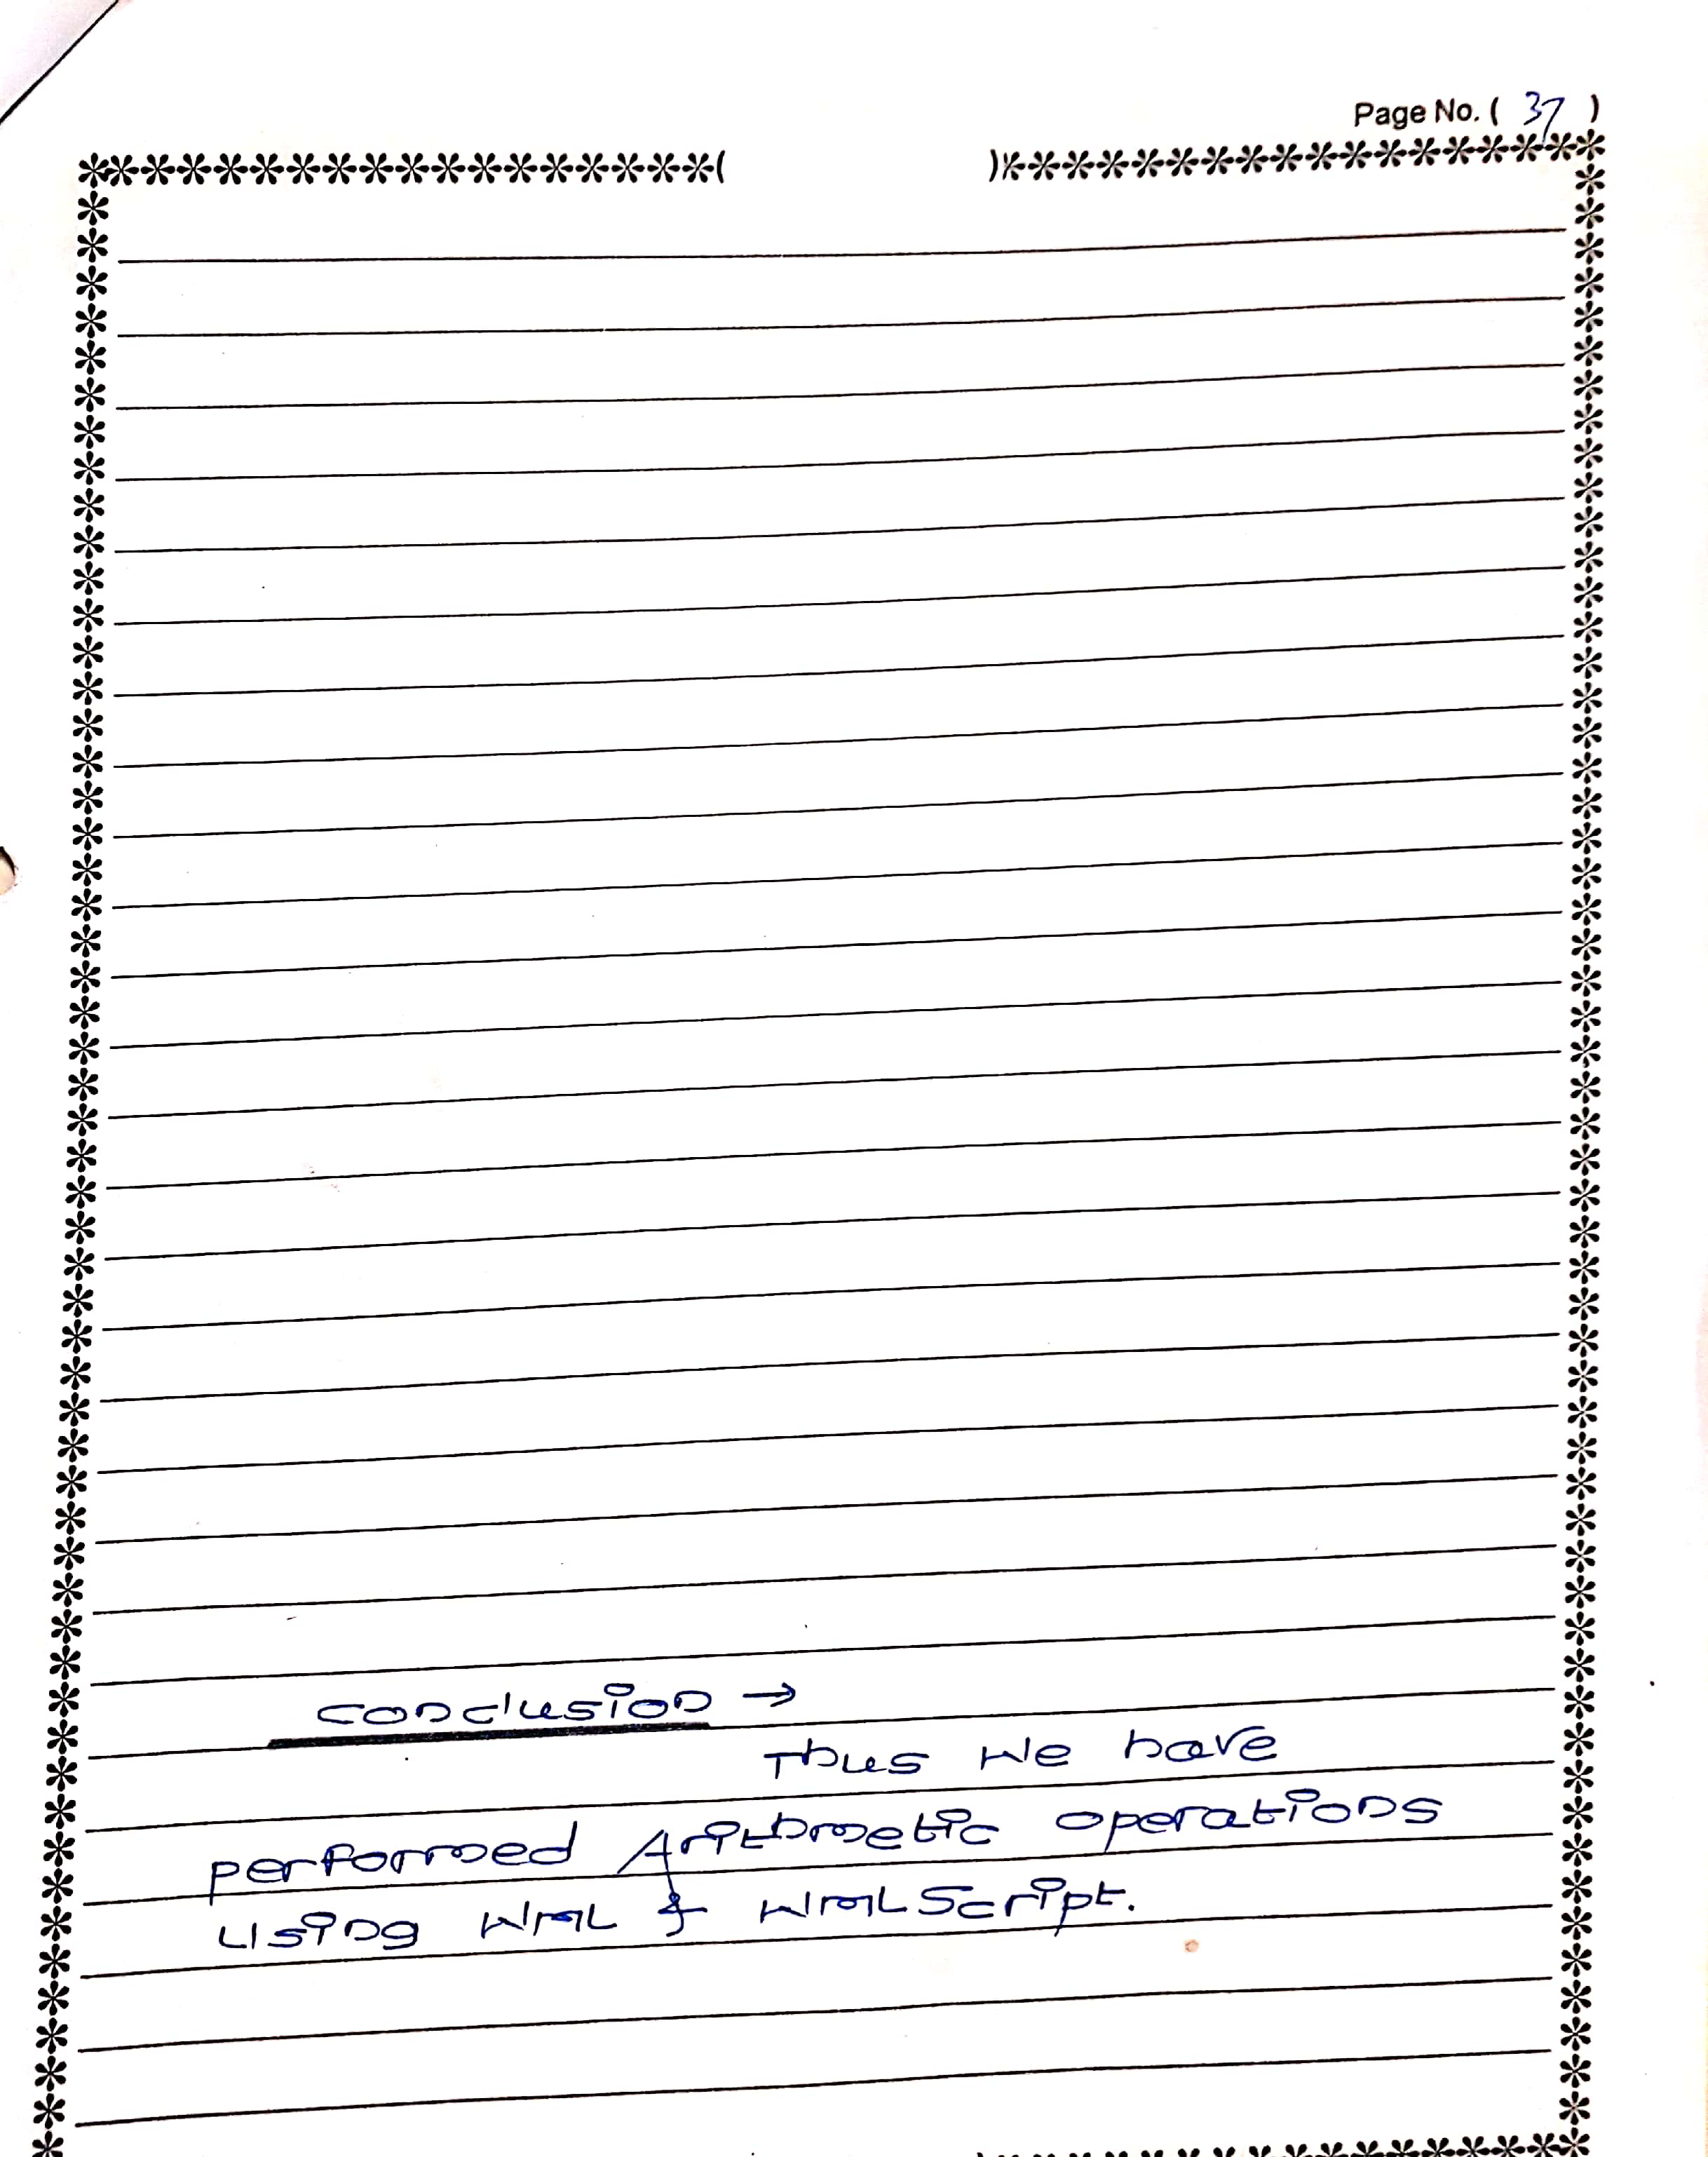 Page No. ( 37 )
conclusion →
Thus we have
performed Arithmetic operations
using WML & WMLScript.